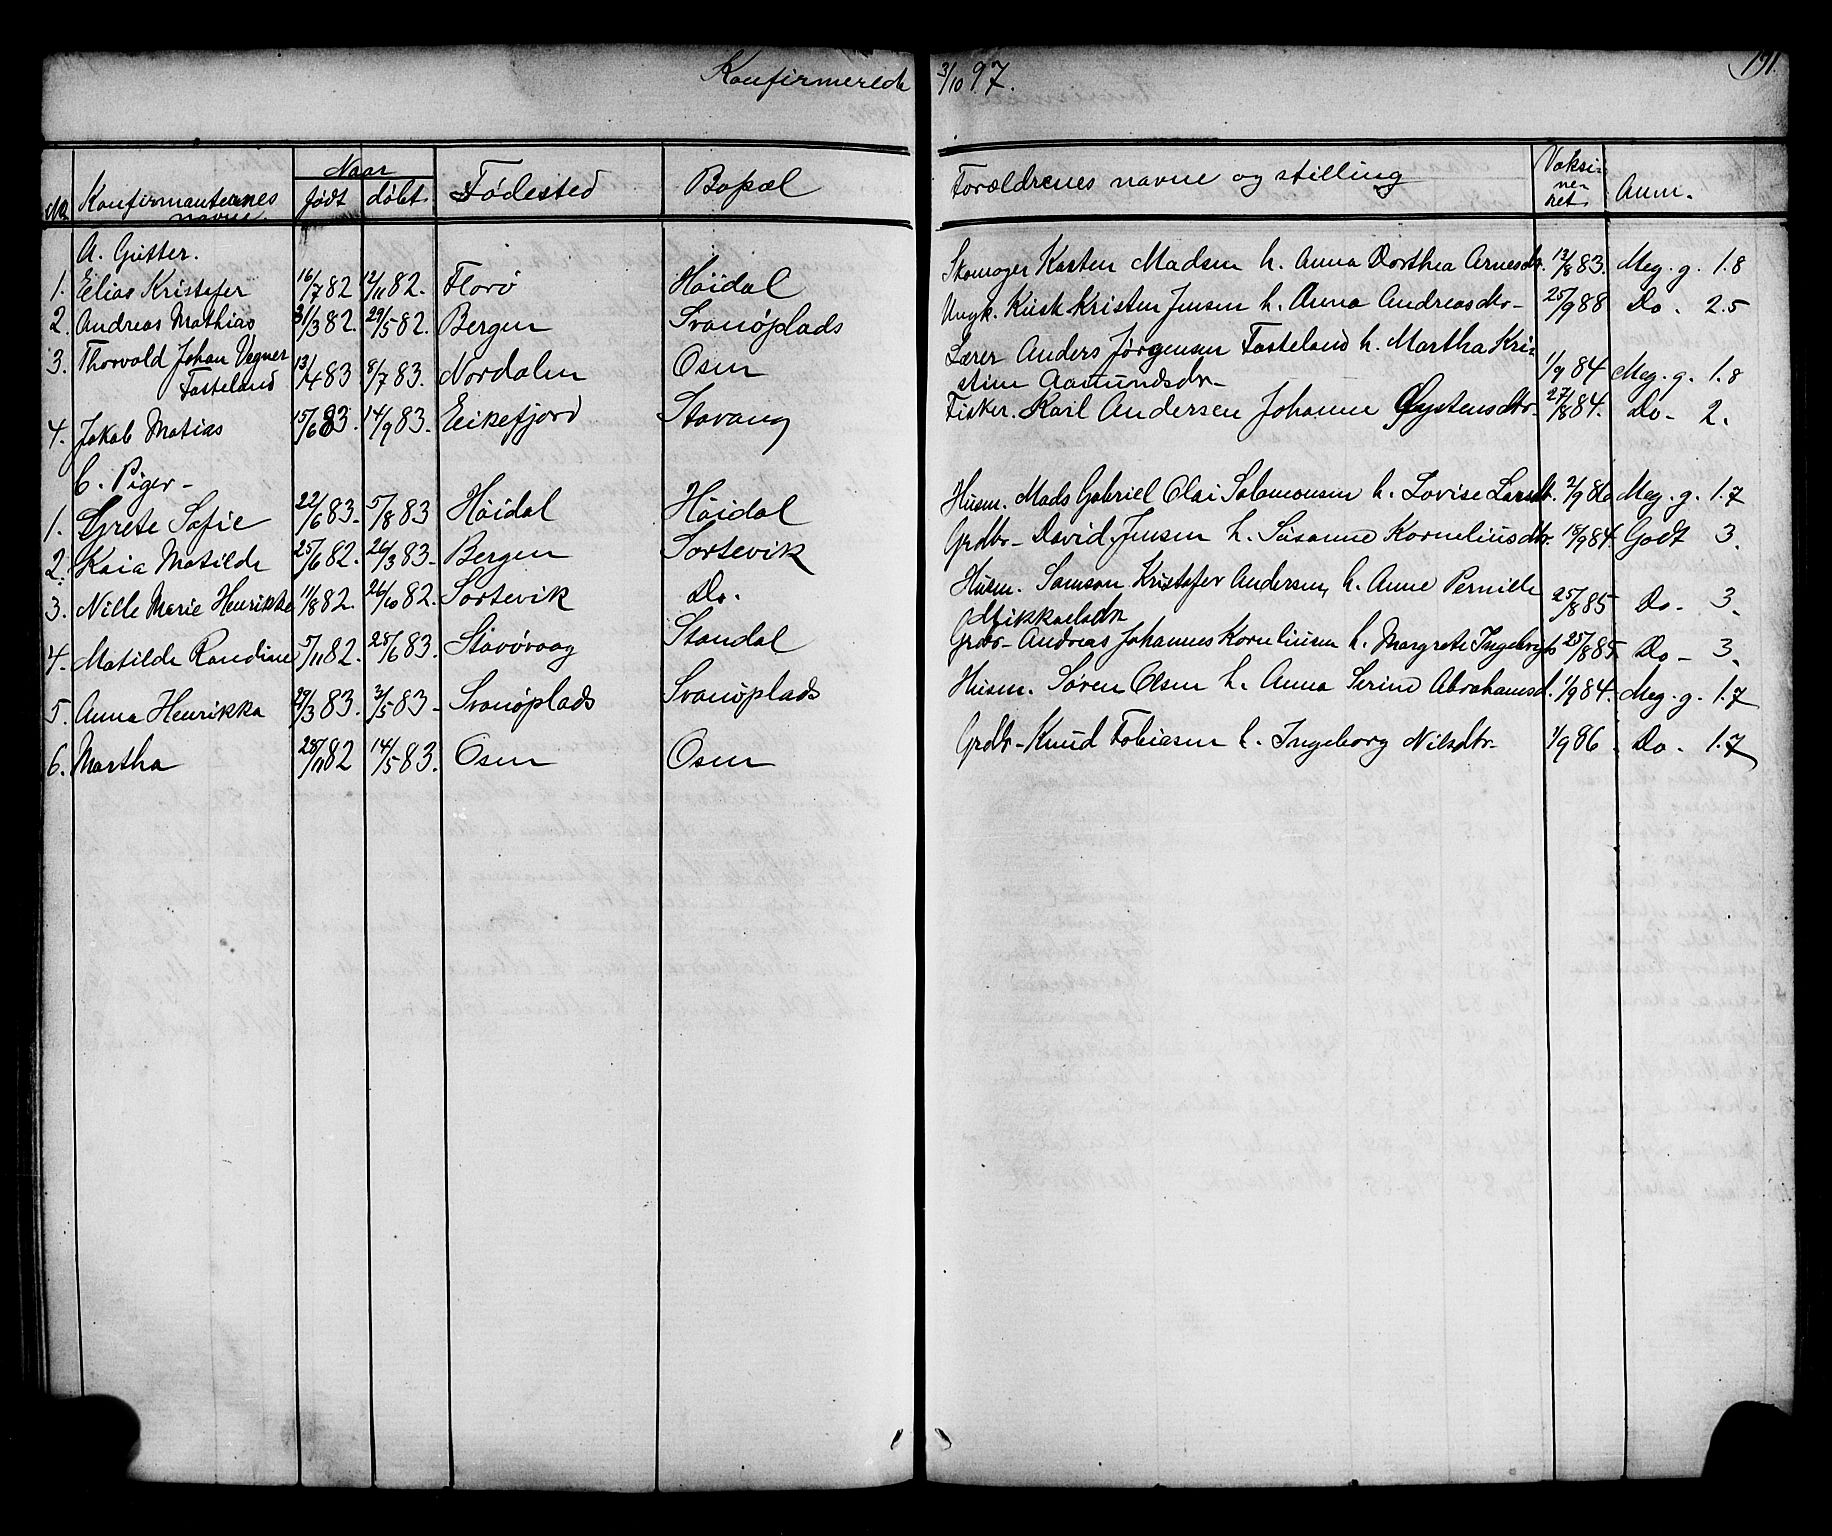 Konfirmerede 3/10 97. 191.
No. Konfirmanternes navne Naar født døbt Fødested Bopæl Forældrenes navne og stilling Vaksineret Anm.
A. Gutter.
1. Elias Kristofer 16/7 82 12/11 82. Florø Høidal Skomager Karsten Madsen h. Anna Dorthea Arnesdtr. 13/8 83. Meg. g. 1.8
2. Andreas Mathias 31/3 82. 29/5 82. Bergen Svanøplads Ungk. Kusk Kristen Jensen h. Anna Andreasdtr- 25/9 88 Do. 2.5
3. Thorvald Johan Vegner Fasteland 13/4 83 8/7 83. Nordalen Osen Lærer Anders Jørgensen Fasteland h. Martha Kri-
stine Aamundsdr- 1/9 84 Meg. g. 1.8
4. Jakob Matias 15/6 83. 14/9 83. Eikefjord Stavang Fisker. Karl Andersen Johanne Øystensdtr- 27/8 84. Do- 2.
C. Piger-
1. Grete Sofie 22/6 83. 5/8 83 Høidal Høidal Husm. Mads Gabriel Olai Salamonsen h. Lovise Larsdtr. 2/9 86 Meg. g. 1.7
2. Kaia Matilde 25/6 82. 26/3 83. Bergen Sortevik Grdbr- David Jensen h. Susanne Korneliusdtr. 18/9 84. Godt 3.
3. Nille Marie Henrikke 11/8 82. 26/10 82. Sortevik Do. Husm. Samson Kristofer Andersen, h. Anne Pernille
Mikkaelsdr 25/8 85 Do- 3.
4. Matilde Randine 5/11 82. 25/6 83. Stavøvaag Standal Grdbr- Andreas Johannes Korneliusen h. Margrete Ingebrigts 25/8 85. Do- 3.
5. Anna Henrikka 29/3 83. 3/5 83- Svanøplads Svanøplads Husm. Søren Olsen h. Anna Serine Abrahamsd. 1/9 84. Meg. g. 1.7
6. Martha 25/11 82 14/5 83. Osen Osen Grdbr- Knud Tobiasen h. Ingeborg Nilsdtr- 1/9 86 Do. 1.7